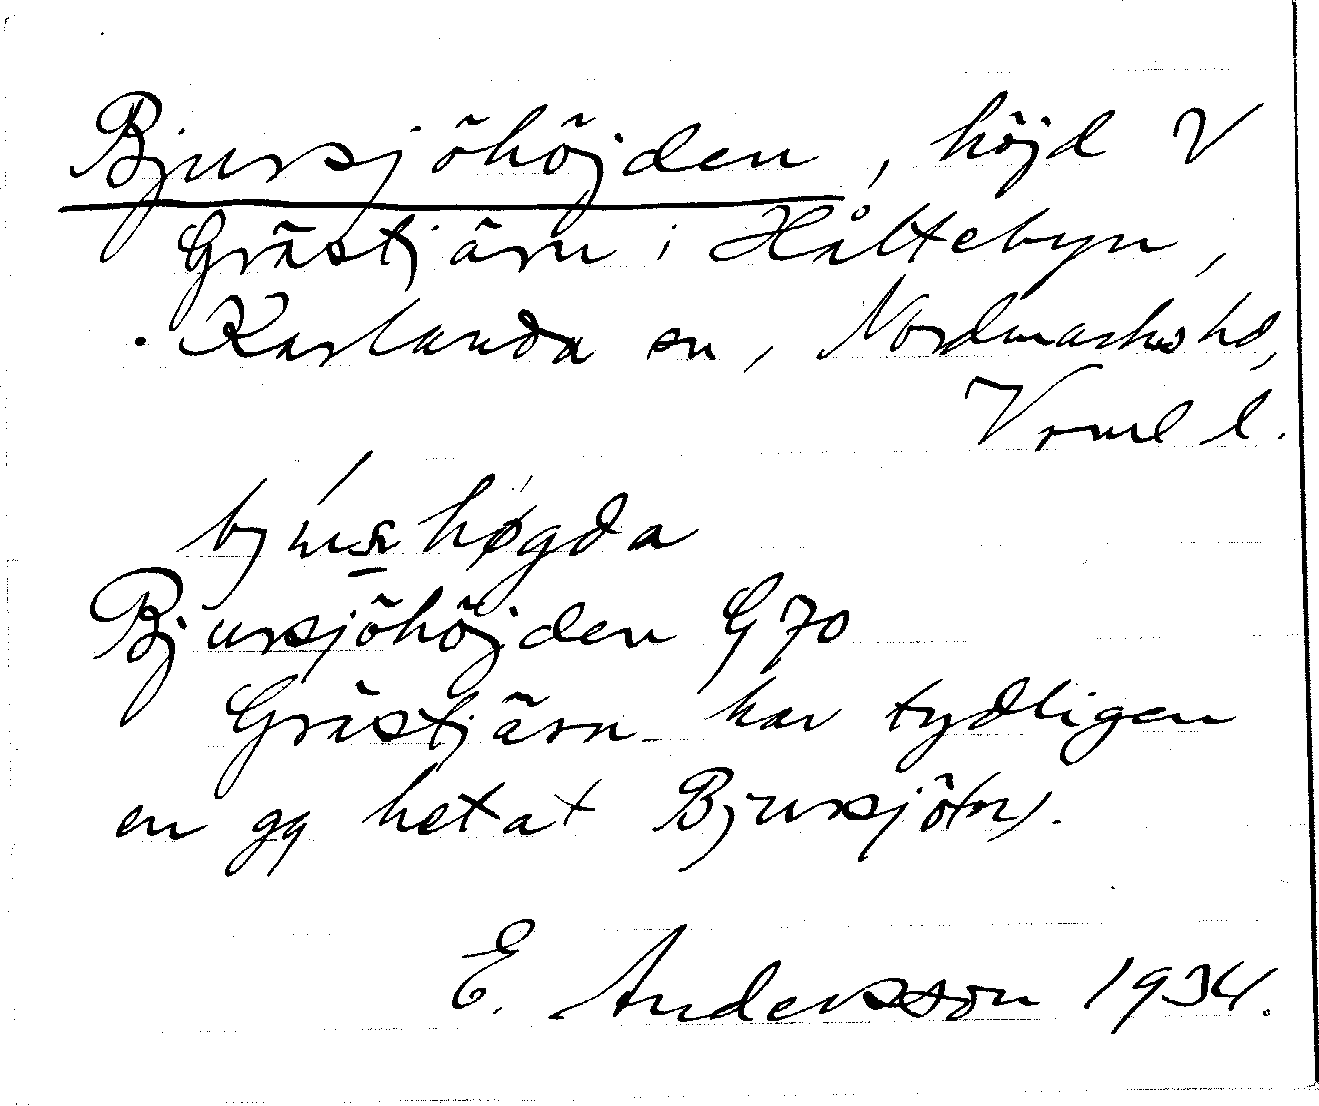 Bjursjöhöjden, höjd V
Grästjärn i Håltebyn,
Karlanda sn, Nordmarks hd,
Vrml l.
Bjursjöhöjden G 70
Grästjärn har tydligen
en gg hetat Bjursjötn).
E. Andersson 1934.